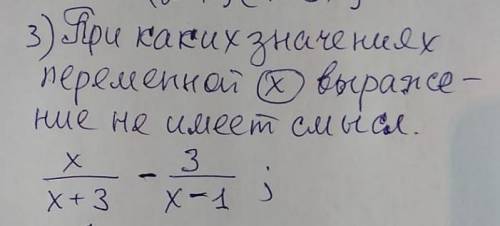 3) При каких значениях
переменной (x) выраже-
ние не имеет смысл.
x/(x+3) - 3/(x-1) ;